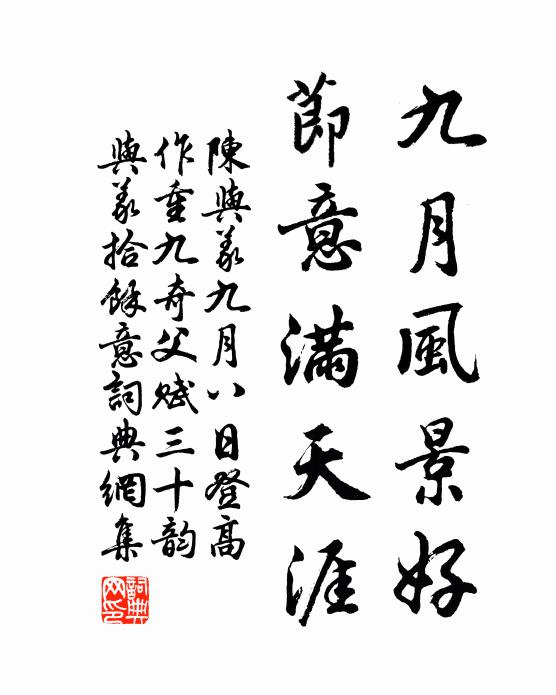 九月風景好
節意滿天涯
陳與義九月八日登高
作重九奇父賦三十韵
與義拾餘意詞典網集
詞典
网印